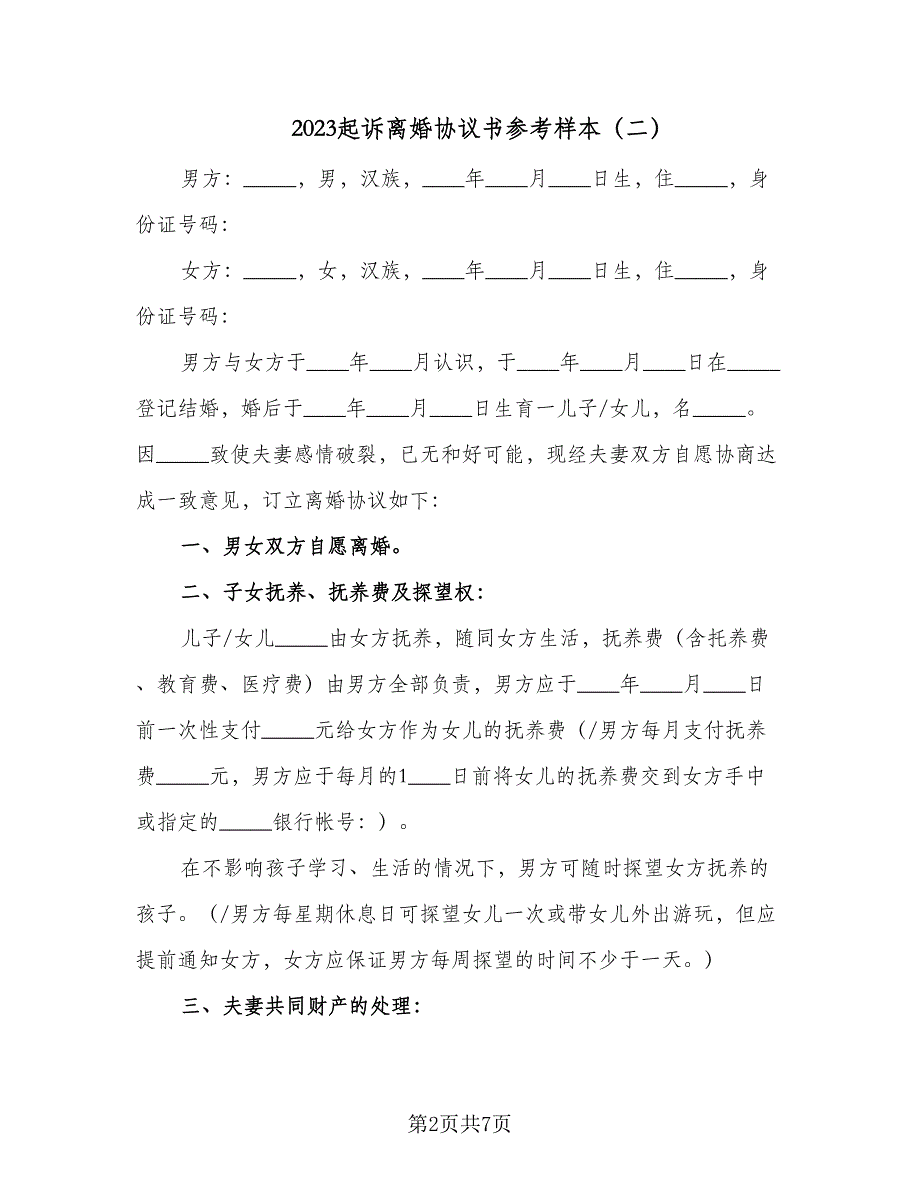 2023起诉离婚协议书参考样本（二）
男方：_____，男，汉族，____年____月____日生，住_____，身
份证号码：
女方：_____，女，汉族，____年____月____日生，住_____，身
份证号码：
男方与女方于____年____月认识，于____年____月____日在_____
登记结婚，婚后于____年____月____日生育一儿子/女儿，名_____。
因_____致使夫妻感情破裂，已无和好可能，现经夫妻双方自愿协商达
成一致意见，订立离婚协议如下：
一、男女双方自愿离婚。
二、子女抚养、抚养费及探望权：
儿子/女儿_____由女方抚养，随同女方生活，抚养费（含托养费
、教育费、医疗费）由男方全部负责，男方应于____年____月____日
前一次性支付_____元给女方作为女儿的抚养费（/男方每月支付抚养
费_____元，男方应于每月的1____日前将女儿的抚养费交到女方手中
或指定的_____银行帐号：）。
在不影响孩子学习、生活的情况下，男方可随时探望女方抚养的
孩子。（/男方每星期休息日可探望女儿一次或带女儿外出游玩，但应
提前通知女方，女方应保证男方每周探望的时间不少于一天。）
三、夫妻共同财产的处理：
第2页共7页